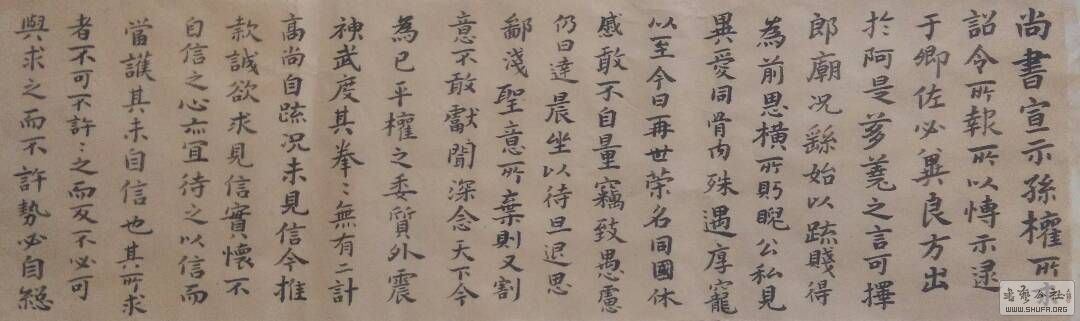 尚書宣示孫權所求
詔令所報所以博示逮
于卿佐必冀良方出
於阿是芻蕘之言可擇
郎廟况繇始以疏賤得
為前思横所眄睨公私見
異愛同骨肉殊遇厚寵
以至今日再世荣名同國休
慼敢不自量竊致愚慮
仍日達晨坐以待旦退思
鄙淺聖意所棄則又割
意不敢獻聞深念天下今
為已平權之委質外震
神武度其拳〻無有二計
高尚自疏况未見信今推
款誠欲求見信實懷不
自信之心亦宜待之以信而
當護其未自信也其所求
者不可不許〻之而反不必可
與求之而不許勢必自絕
書藝公社
WWW.SHUFA.ORG